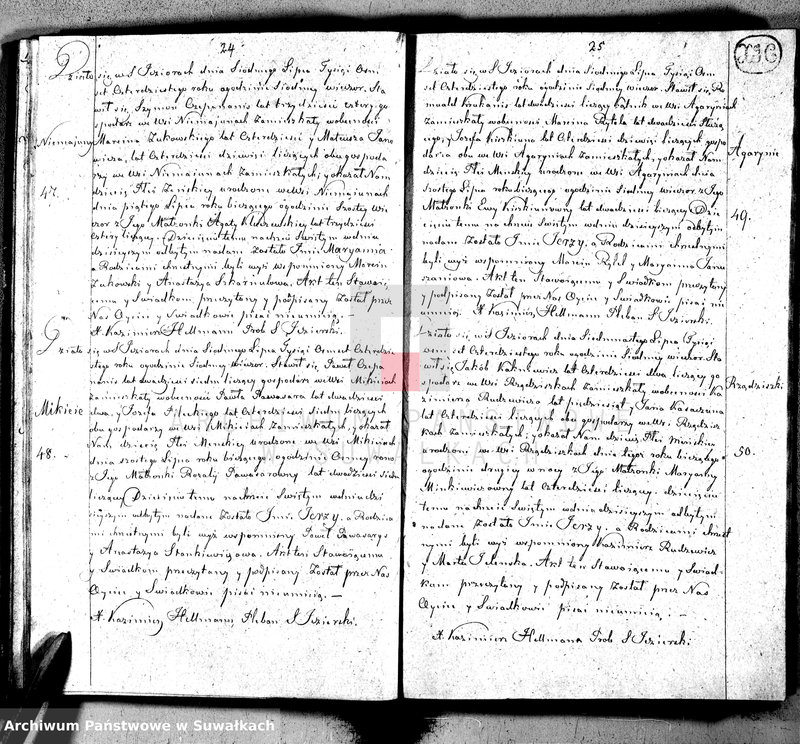 24
Działo się w S Jeziorach dnia Siódmego Lipca Tysiąc Osm
set Czterdziestego roku o godzinie Siódmey wieczor. Sta
wił się, Szymon Czepanonis lat trzydzieści cztery go
spodarz we Wsi Niemajunach Zamieszkały w obecności
Niemajuny
Marcina Żukowskiego lat Czterdzieści y Mateusza Jano
wicza, lat Czterdzieści dziewięć liczących obu gospoda
rzy we wsi Niemajunach Zamieszkałych; y okazał Nam
47.
dziecię Płci Żeńskiey urodzone we Wsi Niemajunach
dnia piątego Lipca roku bieżącego o godzinie Szostey Wie
czor z Jego Małżonki Agaty lat trzydzieści
cztery liczącey. Dziecięciu temu na chrzcie Świętym w dniu
dzisieyszym odbytym nadane Zostało Imie Maryanna
a Rodzicami chrzestnymi byli wyż wspomniony Marcin
Żukowski y Anastazya Sekarnulowa. Akt ten Stawaią
cemu y Świadkom przeczytany y podpisany Został przez
Nas Oyciec y Świadkowie pisać nieumieią.
X. Kazimierz Hellmann Prob S Jezierski.
Działo się w S Jeziorach dnia Siódmego Lipca Tysiąc Osmset Czterdzie
stego roku o godzinie Siódmey wieczor. Stawił się, Paweł Czepa
nonis lat dwadzieścia siedm liczący gospodarz we Wsi Mikiciach
zamieszkały w obecności Pawła Pawasara lat dwadzieścia
Mikicie
dwa, y Jozefa Pileckiego lat Czterdzieści Siedm liczących
obu gospodarzy we wsi Mikiciach Zamieszkałych, y okazał
Nam dziecię Płci Męzkiey urodzone we Wsi Mikiciach
48.
dnia szostego Lipca roku bieżącego o godzinie Osmey rano
z Jego Małżonki Rozalij Pawasarowny lat dwadzieścia siedm
liczącey Dziecięciu temu na chrzcie Świętym w dniu dzi
sieyszym odbytym nadane Zostało Imie Jerzy. a Rodzica
mi chrzestnymi byli wyż wspomniony Paweł Pawasarys
y Anastazya Stankiewiczowa. Akt ten Stawaiącemu
y Świadkom przeczytany y podpisany Został przez Nas
Oyciec y Świadkowie pisać nieumieią. —
X. Kazimierz Hellmann, Pleban S Jezierski.
25
Działo się w S Jeziorach dnia Siódmego Lipca Tysiąc Osm
set Czterdziestego roku o godzinie Siódmey wieczor. Stawił się, Ro
muald lat dwadzieścia liczący we Wsi Agaryniach
Zamieszkały w obecności Marcina Rykla lat dwadzieścia
y Jozefa lat Czterdzieści dziewięć liczących gospo
darza obu we wsi Agaryniach Zamieszkałych, y okazał Nam
Agarynie
dziecię Płci Męzkiey urodzone we Wsi Agaryniach dnia
Szostego Lipca roku bieżącego o godzinie Siódmey wieczor z Jego
Małżonki Ewy lat dwadzieścia liczącey Dzie
49.
cięciu temu na chrzcie Świętym w dniu dzisieyszym odbytym
nadane Zostało Imie Jerzy. a Rodzicami chrzestnymi
byli wyż wspomniony Marcin Rykel y Maryanna Janu
szaniowa. Akt ten Stawaiącemu y Świadkom przeczytany
y podpisany Został przez Nas Oyciec y Świadkowie pisać nie
umieią. X. Kazimierz Hellmann, Pleban S Jezierski.
Działo się w S Jeziorach dnia Siedmnastego Lipca Tysiąc
Osmset Czterdziestego roku o godzinie Siódmey wieczor. Sta
wił się, Jakób lat Czterdzieści dwa liczący go
Rządziszki
spodarz we Wsi Rządziszkach Zamieszkały w obecności Ka
zimierza Rudzewicza lat pięćdziesiąt, y Jana
lat Czterdzieści liczących obu gospodarzy we Wsi Rządzisz
kach Zamieszkałych; y okazał Nam dziecię Płci Męzkiey
50.
urodzone we Wsi Rządziszkach dnia tegoż roku bieżącego
o godzinie drugiey w nocy z Jego Małżonki Maryanny
Minkiewiczowny lat Czterdzieści liczącey. dziecięciu
temu na chrzcie Świętym w dniu dzisieyszym odbytym
nadane Zostało Imie Jerzy. a Rodzicami chrzest
nymi byli wyż wspomniony Kazimierz Rudzewicz
y Marta Akt ten Stawaiącemu y Świad
kom przeczytany y podpisany Został przez Nas
Oyciec y Świadkowie pisać nieumieią. —
X. Kazimierz Hellmann Prob S Jezierski.
Archiwum Państwowe w Suwałkach